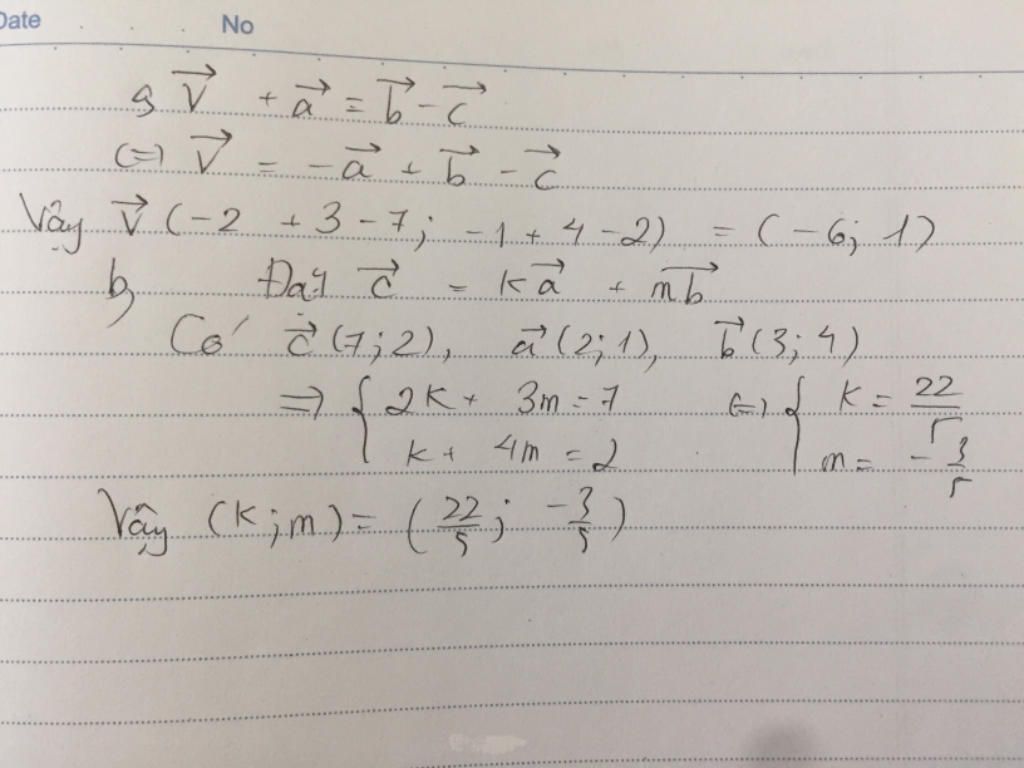 Date No
a, $\vec{V} + \vec{a} = \vec{b} - \vec{c}$
(=) $\vec{V} = -\vec{a} + \vec{b} - \vec{c}$
Vậy $\vec{V}$ (-2 + 3 - 7; -1 + 4 - 2) = (-6; 1)
b, Đặt $\vec{c} = k\vec{a} + m\vec{b}$
Có $\vec{c}$ (7; 2), $\vec{a}$ (2; 1), $\vec{b}$ (3; 4)
=> { 2k + 3m = 7 (=) { k = 22/5
k + 4m = 2 m = -3/5
Vậy (k; m) = (22/5; -3/5)